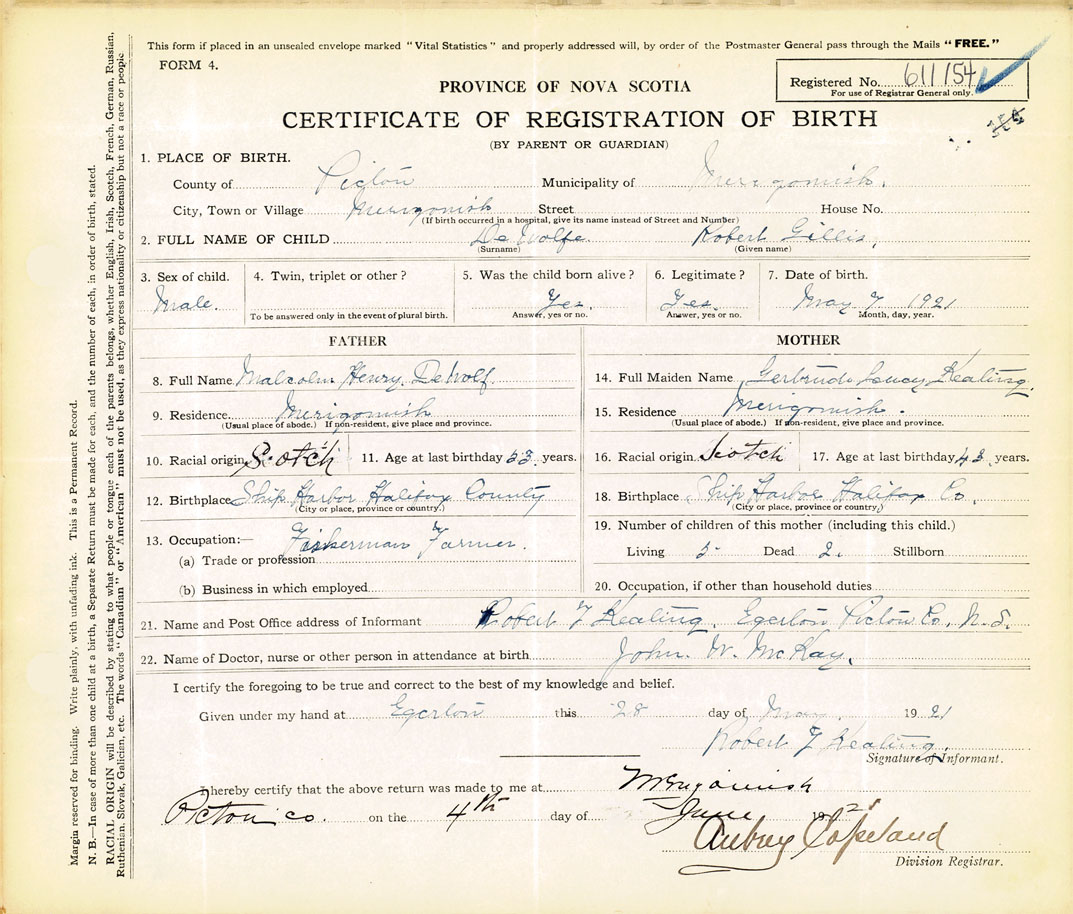 This form if placed in an unsealed envelope marked "Vital Statistics" and properly addressed will, by order of the Postmaster General pass through the Mails "FREE."
FORM 4.
Registered No. 611154
For use of Registrar General only.
PROVINCE OF NOVA SCOTIA
CERTIFICATE OF REGISTRATION OF BIRTH
(BY PARENT OR GUARDIAN)
1. PLACE OF BIRTH.
County of Pictou Municipality of Merigomish.
City, Town or Village Merigomish Street House No.
(If birth occurred in a hospital, give its name instead of Street and Number)
2. FULL NAME OF CHILD DeWolfe. Robert Gillis,
(Surname) (Given name)
3. Sex of child. 4. Twin, triplet or other? 5. Was the child born alive? 6. Legitimate? 7. Date of birth.
Male. Yes. Yes. May 7 1921
To be answered only in the event of plural birth. Answer, yes or no. Answer, yes or no. Month, day, year.
FATHER MOTHER
8. Full Name Malcolm Henry. DeWolf. 14. Full Maiden Name Gertrude Keating.
9. Residence. Merigomish 15. Residence Merigomish.
(Usual place of abode.) If non-resident, give place and province. (Usual place of abode.) If non-resident, give place and province.
10. Racial origin Scotch 11. Age at last birthday years. 16. Racial origin Scotch 17. Age at last birthday 43. years.
12. Birthplace Ship Harbor Halifax County 18. Birthplace Ship Harbor Halifax Co.
(City or place, province or country.) (City or place, province or country.)
13. Occupation:— Fisherman Farmer.
(a) Trade or profession
(b) Business in which employed
19. Number of children of this mother (including this child.)
Living 5 Dead 2. Stillborn
20. Occupation, if other than household duties
21. Name and Post Office address of Informant Robert F Keating. Egerton Pictou Co. N.S.
22. Name of Doctor, nurse or other person in attendance at birth John. W. McKay.
I certify the foregoing to be true and correct to the best of my knowledge and belief.
Given under my hand at Egerton this 28 day of May. 1921
Robert F Keating.
Signature of Informant.
I hereby certify that the above return was made to me at Merigomish
Pictou co. on the 4th day of June 1921
Aubrey Copeland
Division Registrar.
Margin reserved for binding. Write plainly, with unfading ink. This is a Permanent Record.
N. B.—In case of more than one child at a birth, a Separate Return must be made for each, and the number of each, in order of birth, stated.
RACIAL ORIGIN will be described by stating to what people or tongue each of the parents belongs, whether English, Irish, Scotch, French, German, Russian,
Ruthenian, Slovak, Galician, etc. The words "Canadian" or "American" must not be used, as they express nationality or citizenship but not a race or people